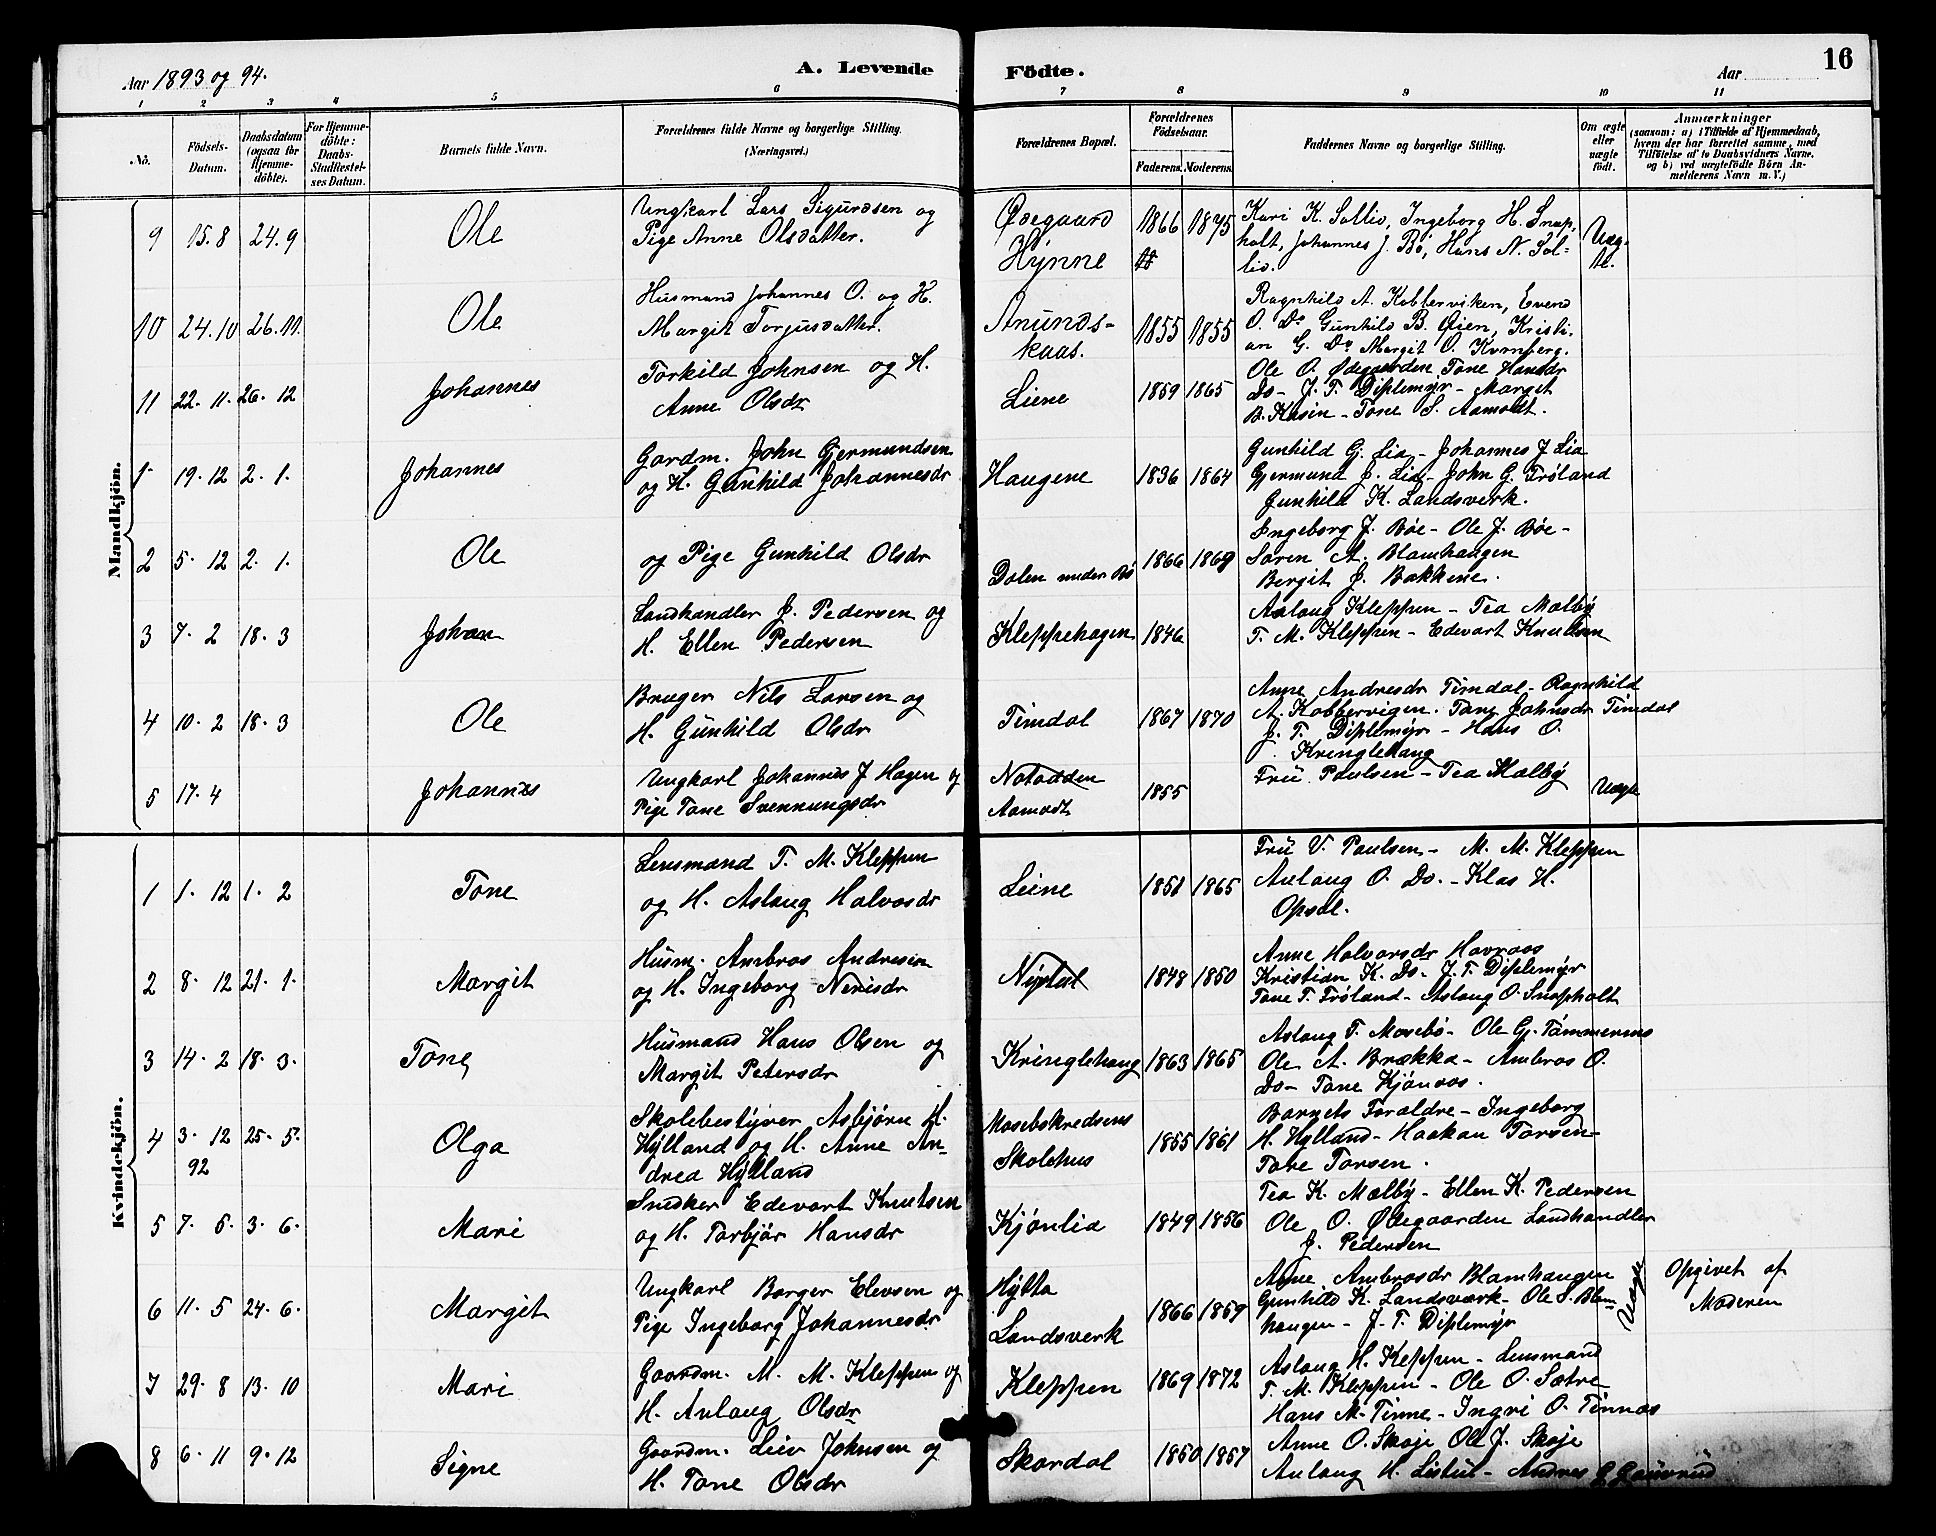 Aar 1893 og 94.
A. Levende
Födte.
Aar
16
1 2 3 4 5 6 7 8 9 10 11
No.
Födsels-
Datum.
Daabsdatum
(ogsaa for
Hjemme-
döbte).
For Hjemme-
döbte:
Daabs-
Stadfæstel-
ses Datum.
Barnets fulde Navn.
Forældrenes fulde Navne og borgerlige Stilling.
(Næringsvei.)
Forældrenes Bopæl.
Forældrenes
Födselsaar.
Faderens. Moderens.
Faddernes Navne og borgerlige Stilling.
Om ægte
eller
uægte
födt.
Anmærkninger
(saasom: a) i Tilfælde af Hjemmedaab,
hvem der har forrettet samme, med
Tilföielse af to Daabsvidners Navne,
og b) ved uægtefödte Börn An-
melderens Navn m. V.)
Mandkjön.
9 15. 8 24. 9 Ole
Ungkarl Lars Sigurdsen og
Pige Anne Olsdatter.
Ødegaard
Hynne
1866 1875
Kari K. Sollid, Ingeborg H. Snap-
holt, Johannes J. Bö, Hans N. Sol-
lid.
Uæg-
te.
10 24. 10 26. 11. Ole
Husmand Johannes O. og H.
Margit Torjusdatter.
Anunds-
kaas.
1855 1855
Ragnhild A. Kobberviken, Evend
O. Do Gunhild B. Øien, Kristi-
an G. Do Margit O. Kvrnberg.
11 22. 11. 26. 12 Johannes
Torkild Johnsen og H.
Anne Olsdr
Liene
1859 1865
Ole O. Ødegaarden Tone Hansdr
Do - J. T. Diplemyr - Marget
B. Kasin - Tone S. Aamodt.
1 19. 12 2. 1. Johannes
Gardm. John Gjermundsen
og H. Gunhild Johannesdr
Haugene
1836 1864
Gunhild G. Lia - Johannes J Lia
Gjermund J. Lia - John G. Fröland
Gunhild K. Landsverk.
2 5. 12 2. 1. Ole
og Pige Gunhild Olsdr
Dalen under Bö
1866 1869
Ingeborg J. Bøe - Ole J. Bøe -
Søren A. Blamhaugen
Bergit J. Bakkene.
3 7. 2 18. 3 Johan
Landhandler J. Pedersen og
H. Ellen Pedersen
Kleppehagen
1846
Aslaug Kleppen - Tea Mælby
T. M. Kleppen - Edevart Knutsen
4 10. 2 18. 3 Ole
Bruger Nils Larsen og
H. Gunhild Olsdr
Timdal
1867 1870
Anne Andresdr Timdal - Ragnhild
A. Kobbervigen. Tone Johnsdr Timdal
J. T. Diplemyr - Hans O.
Kringlehaug
5 17. 4 Johannes
Ungkarl Johannes J Hagen og
Pige Tone Svennungsdr
Notodden
Aamodt
1855
Fru Paulsen - Tea Mælby
Uægte
Kvindekjön.
1 1. 12 1. 2 Tone
Lensmand T. M. Kleppen
og H. Aslaug Halvosdr
Leine
1851 1865
Fru V. Paulsen - M. M. Kleppen
Aslaug O. Do. - Klas H.
Opsal.
2 8. 12 21. 1. Margit
Husm. Ambros Andresen
og H. Ingeborg Nerisdr
1848 1850
Anne Halvorsdr Havraas
Kristian K. Do - J. T. Diplemyr
Tone T. Fröland - Aslaug O. Snapholt
3 14. 2 18. 3. Tone
Husmand Hans Olsen og
Margit Petersdr
Kringlehaug
1863 1865
Aslaug T. Mosebø - Ole G. Tømmeraas
Ole A. Brækka - Ambros O.
Do - Tone Kjönaas.
4 3. 12 25. 5. Olga
92
Skolebestyrer Asbjørn H.
Hylland og H. Anne An-
drea Hylland
Mosebökredsens
Skolehus
1855 1861
Barnets Foraldre - Ingeborg
H. Hylland - Haakan Torsen -
Tone Torsen.
5 7. 5. 3. 6. Mari
Snedker Edevart Knutsen
og H. Torbjør Hansdr
Kjönlia
1849 1856
Tea K. Mælby - Ellen K. Pedersen
Ole O. Ødegaarden Landhandler
J. Pedersen
6 11. 5 24. 6. Margit
Ungkarl Borger Elevsen og
Pige Ingeborg Johannesdr
Hylta
Landsverk
1866 1859
Anne Ambrosdr Blamhaugen
Gunhild K. Landsværk - Ole S. Blam-
haugen - J. T. Diplemyr
Uægte
Opgivet af
Moderen
7 29. 8 13. 10 Mari
Gaardm. M. M. Kleppen og
H. Aslaug Olsdr
Kleppen
1869 1872
Aslaug H. Keppen - Lensmand
T. M. Kleppen - Ole O. Sætre
Hans M. Tinne - Ingri O. Tinnæs
8 6. 11 9. 12 Signe
Gaardm. Leiv Johnsen og
H. Tone Olsdr
Skardal
1850 1857
Anne O. Skoje Ole J. Skoje
Aslaug H. Listul - Andres G. Gauvrud